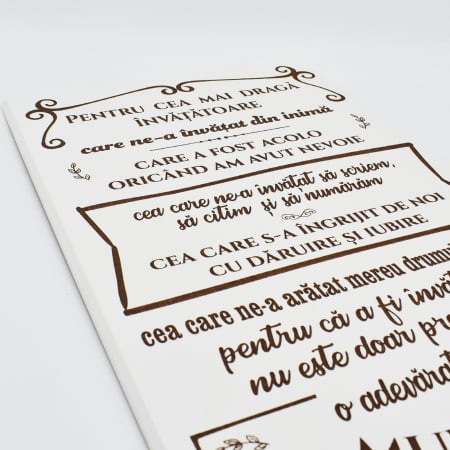 PENTRU CEA MAI DRAGĂ
ÎNVĂȚĂTOARE
care ne-a învățat din inimă
CARE A FOST ACOLO
ORICÂND AM AVUT NEVOIE
cea care ne-a învățat să scriem,
să citim și să numărăm
CEA CARE S-A ÎNGRIJIT DE NOI
CU DĂRUIRE ȘI IUBIRE
cea care ne-a arătat mereu
pentru că a fi
nu este doar
o